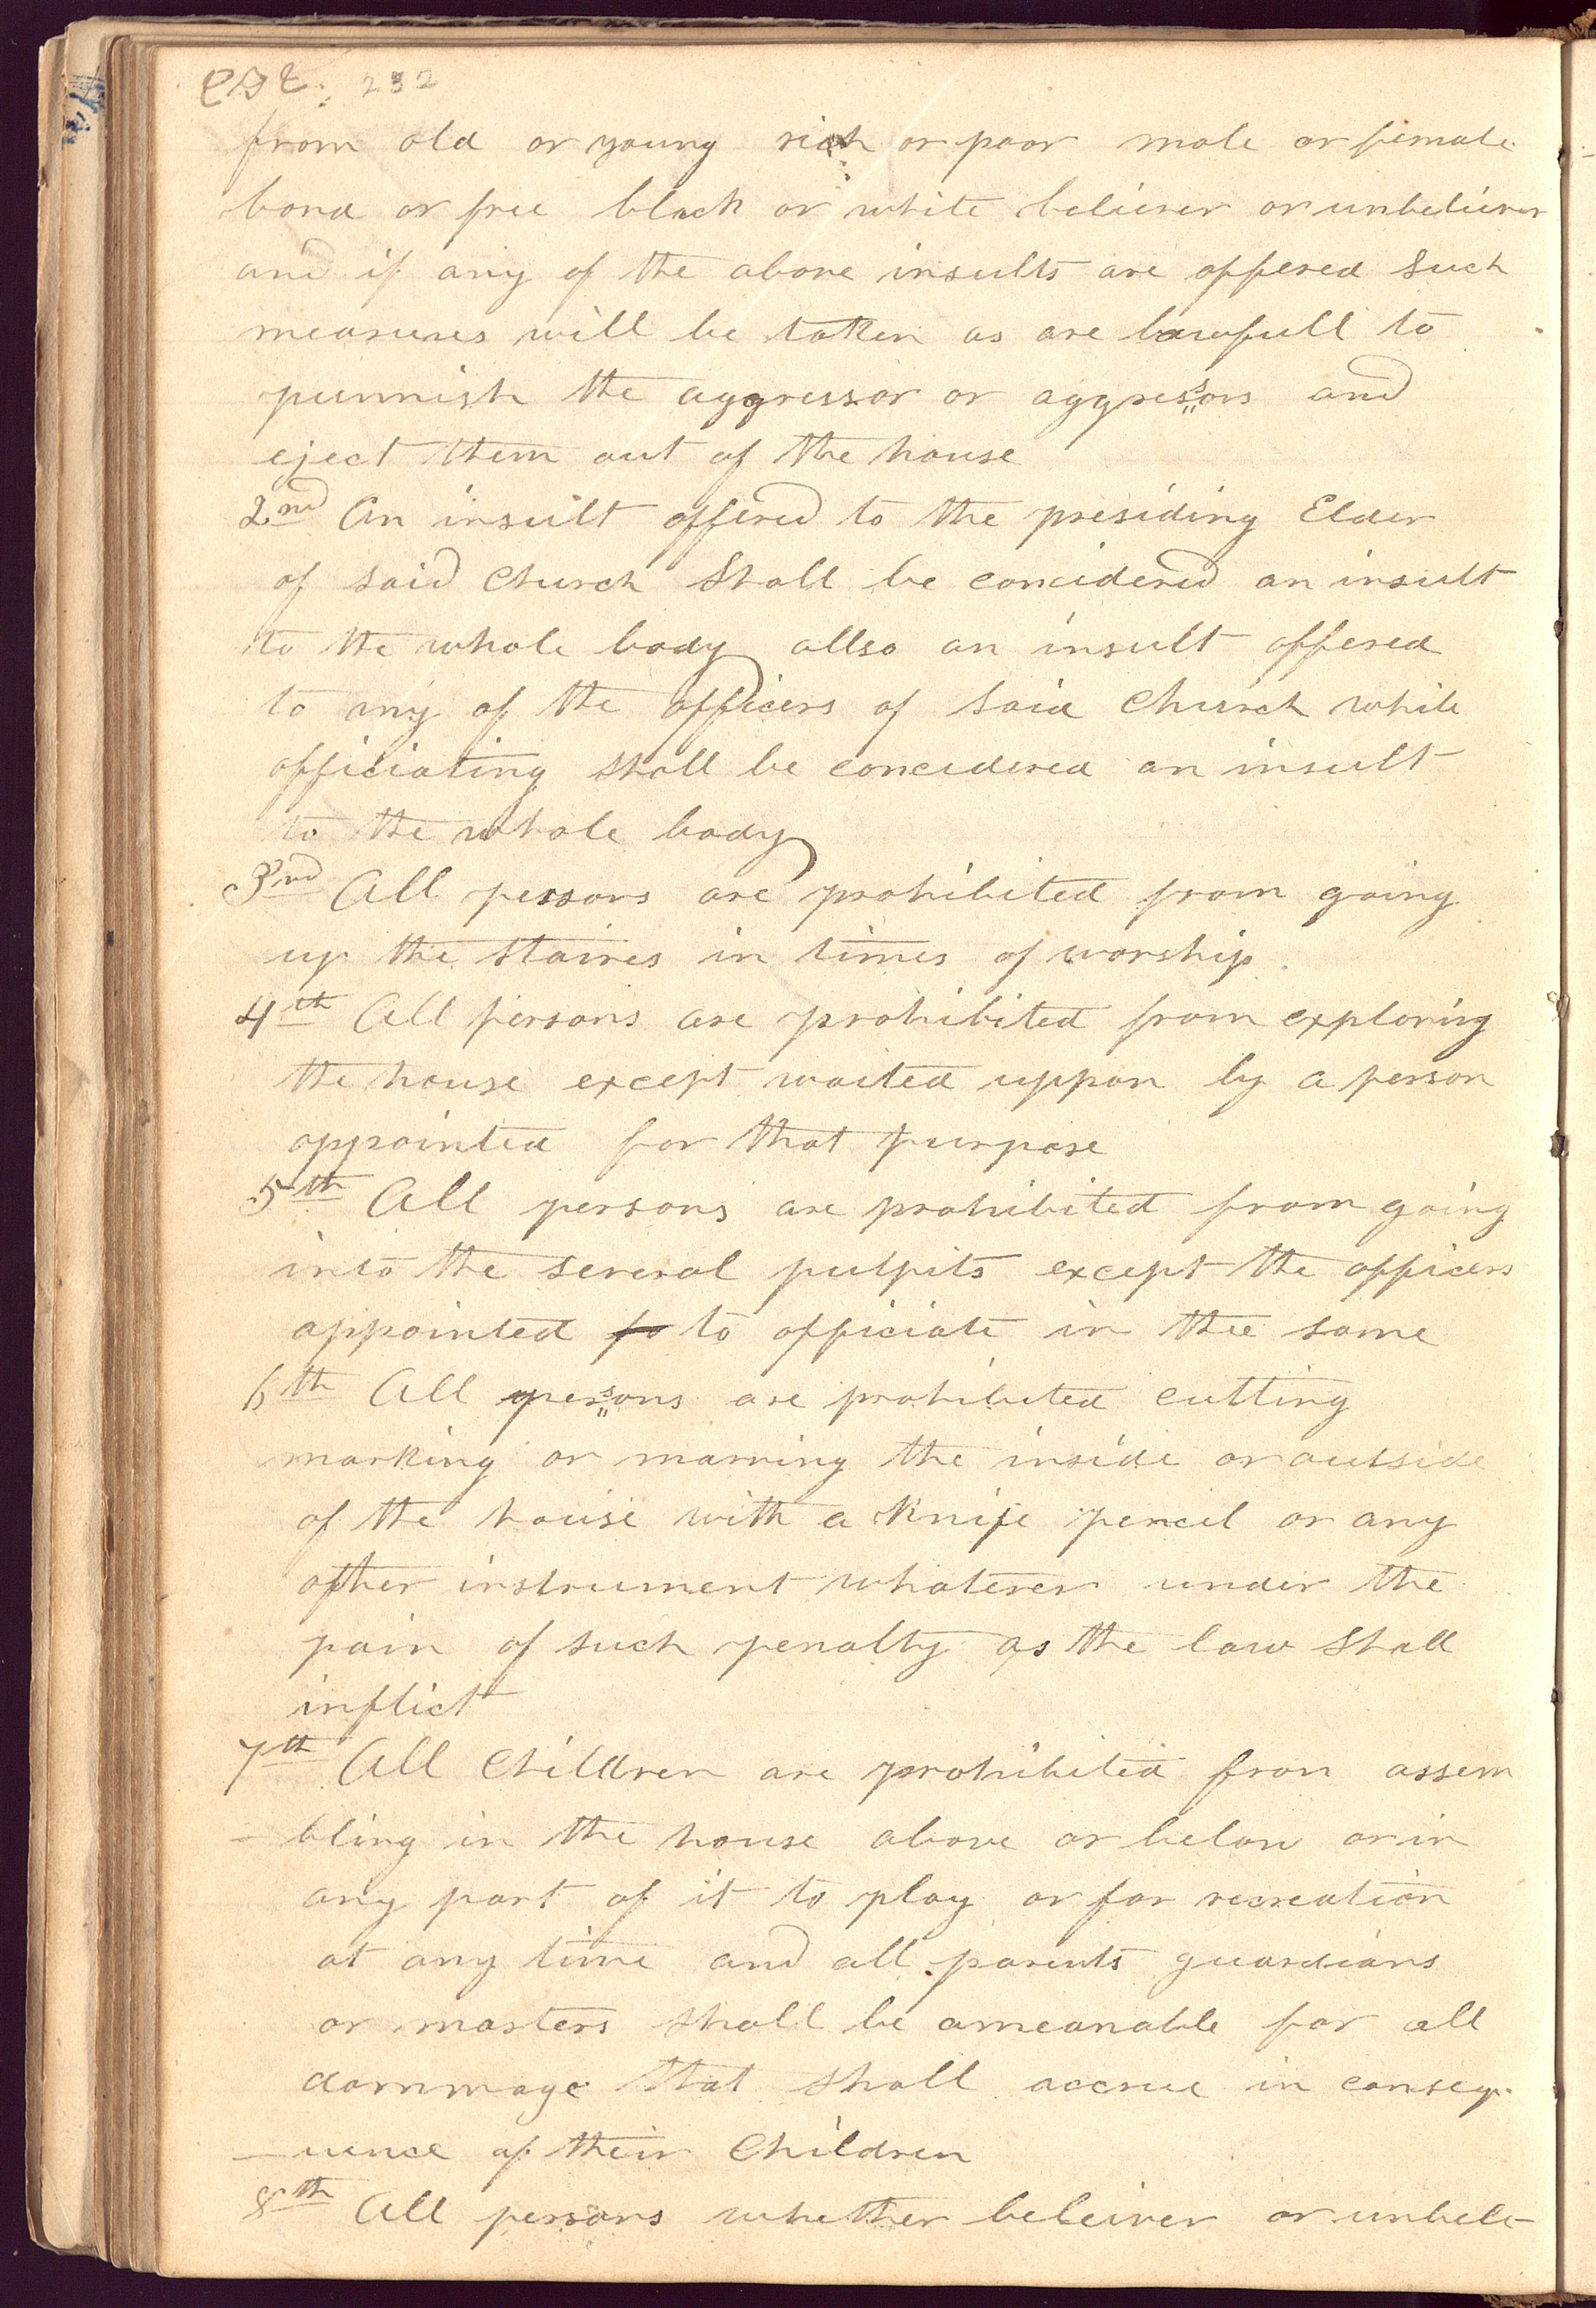 232
from old or young rich or poor male or female
bond or free black or white believer or unbeliever
and if any of the above insults are offered such
measures will be taken as are lawfull to
punnish the aggressor or aggressors and
eject them out of the house
2nd An insult offered to the presiding Elder
of said Church Shall be concidered an insult
to the whole body allso an insult offered
to any of the officers of said Church while
officiating shall be concidered an insult
to the whole body
3rd All persons are prohibited from going
up the staires in times of worship.
4th All persons are prohibited from exploring
the house except waited uppon by a person
appointed for that purpose
5th All persons are prohibited from going
into the several pulpits except the officers
appointed to to officiate in thee same
6th All persons are prohibited cutting
marking or marring the inside or outside
of the house with a Knife pencil or any
other instrument whatever under the
pain of such penalty as the law Shall
inflict
7th All Children are prohibited from assem
-bling in the house above or below or in
any part of it to play or for recreation
at any time and all parents guardians
or masters shall be ameanable for all
dammage that shall accrue in conseq-
-uence of their Children
8th All persons whether beleiver or unbele-